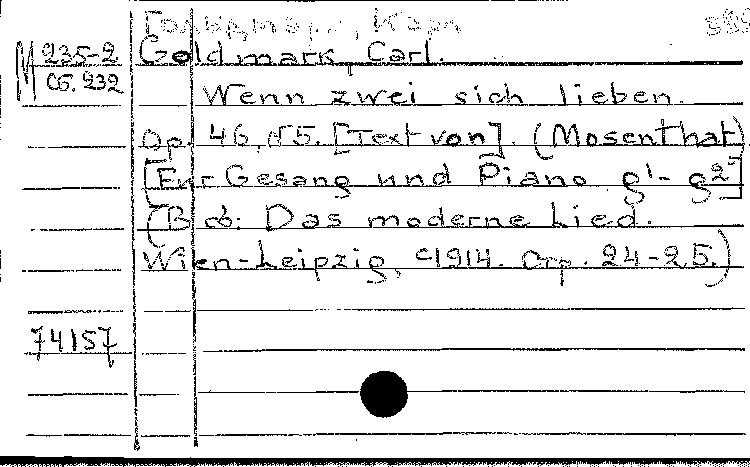 Гольдмарк, Карл
M 235-2
Сб. 232
Goldmark, Carl.
Wenn zwei sich lieben.
Op. 46, №5. [Text von]. (Mosenthal)
[Für Gesang und Piano g¹- g²]
(В сб: Das moderne Lied.
Wien-Leipzig, c1914. Стр. 24-25.)
74157